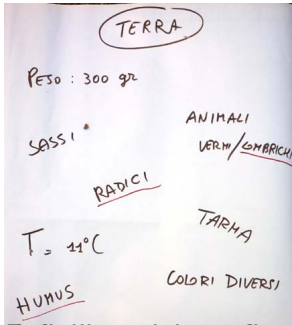 TERRA
PESO : 300 gr
SASSI
ANIMALI
VERMI/LOMBRICHI
RADICI
TARMA
T= 11°C
COLORI DIVERSI
HUMUS